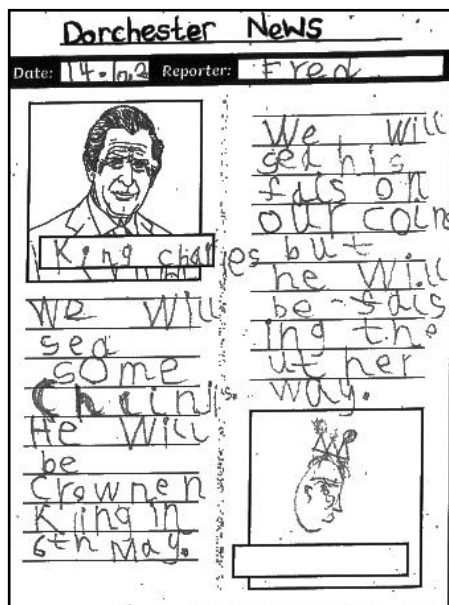 Dorchester News
Date: 14. Reporter: Fred
King charles
We Will
sea
some
Chainjis.
He Will
be
Crownen
King in
6th May.
We Will
sea his
fais on
our coins
but
he Will
be-fais
ing the
uther
way.